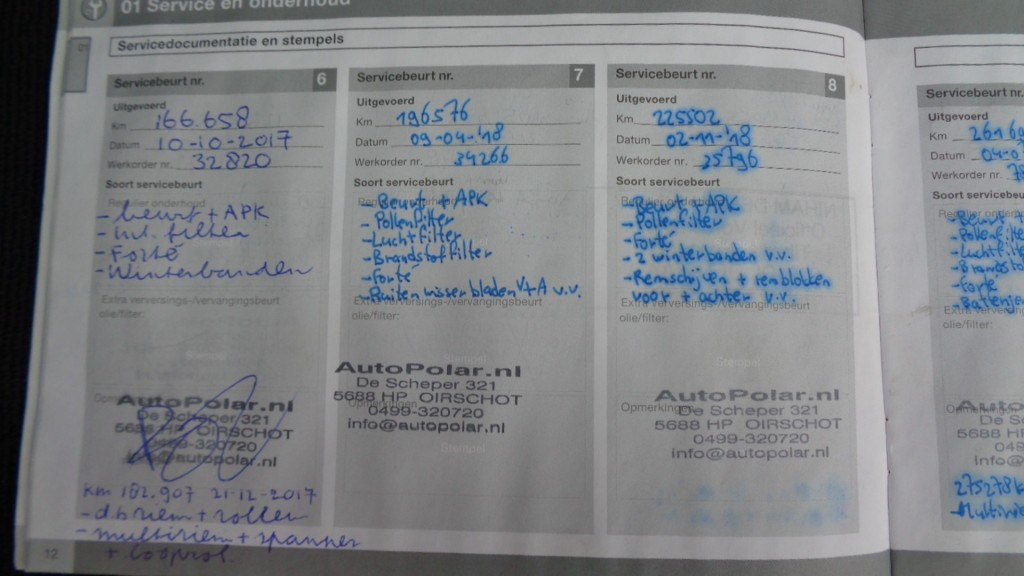 01 Service en onderhoud
01
Servicedocumentatie en stempels
Servicebeurt nr. 6
Uitgevoerd
Km 166.658
Datum 10-10-2017
Werkorder nr. 32820
Soort servicebeurt
Regulier onderhoud
- beurt + APK
- int. filter
- Forté
- Winterbanden
Extra verversings-/vervangingsbeurt
olie/filter:
Stempel
AutoPolar.nl
De Scheper 321
5688 HP OIRSCHOT
0499-320720
info@autopolar.nl
km 182.907 21-12-2017
- d.b riem + roller
- multiriem + spanner
+ looprol.
12
Servicebeurt nr. 7
Uitgevoerd
Km 196576
Datum 09-04-'18
Werkorder nr. 34266
Soort servicebeurt
- Beurt + APK
- Pollenfilter
- Luchtfilter
- Brandstoffilter
- Forté
- Ruitenwisserbladen V+A v.v.
Extra verversings-/vervangingsbeurt
olie/filter:
Stempel
AutoPolar.nl
De Scheper 321
5688 HP OIRSCHOT
0499-320720
info@autopolar.nl
Stempel
Servicebeurt nr. 8
Uitgevoerd
Km 225502
Datum 02-11-'18
Werkorder nr. 35796
Soort servicebeurt
- Beurt + APK
- Pollenfilter
- Forté
- 2 winterbanden v.v.
- Remschijven + remblokken
voor + achter v.v.
Extra verversings-/vervangingsbeurt
olie/filter:
Stempel
Opmerkingen
AutoPolar.nl
De Scheper 321
5688 HP OIRSCHOT
0499-320720
info@autopolar.nl
Servicebeurt nr.
Uitgevoerd
Km 2616
Datum 04-0
Werkorder nr.
Soort servicebeurt
- Beur
- Pollenfilte
- Luchtfilt
- Brandsto
- Forté
Extra verversings-
olie/filter:
Opmerkingen
AutoPo
De Sch
5688 HP
049
info@
275278 k
- Multirie